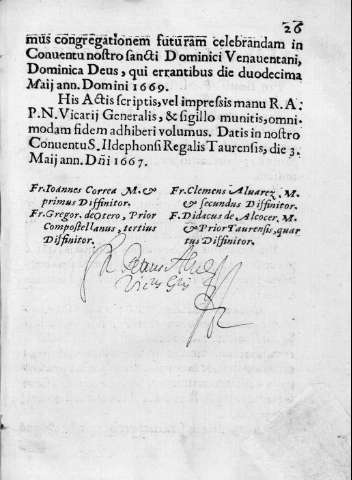 26
mus congregationem futuram celebrandam in
Conuentu nostro sancti Dominici Venauentani,
Dominica Deus, qui errantibus die duodecima
Maij ann. Domini 1669.
His Actis scriptis, vel impressis manu R. A:
P. N. Vicarij Generalis, & sigillo munitis, omni-
modam fidem adhiberi volumus. Datis in nostro
Conuentu S. Ildephonsi Regalis Taurensis, die 3.
Maij ann. Dñi 1667.
Fr. Ioannes Correa M. &
primus Diffinitor.
Fr. Gregor. de Otero, Prior
Compostellanus, tertius
Diffinitor.
Fr. Clemens Aluarez, M.
& secundus Diffinitor.
F. Didacus de Alcocer, M.
& Prior Taurensis, quar
tus Diffinitor.